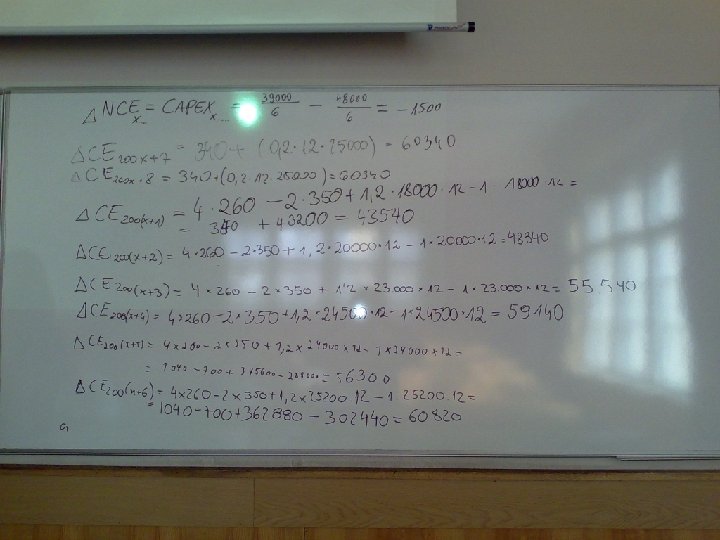 △NCE x- = CAPEX x... = 39000/6 - 48000/6 = -1500
△CE 200x+7 = 340+ (0,2·12·25000) = 60340
△CE 200x+8 = 340+(0,2·12·25000)=60340
△CE 200(x+1) = 4·260 - 2·350+1,2·18000·12 - 1·18000·12 =
= 340 + 43200 = 43540
△CE 200(x+2) = 4·260 - 2·350 + 1,2·20000·12 - 1·20000·12 = 48340
△CE 200(x+3) = 4·260 - 2·350 + 1,2 × 23.000·12 - 1·23.000·12 = 55540
△CE 200(x+4) = 4×260 - 2×350 + 1,2·24500·12 - 1·24500·12 = 59140
△CE 200(x+5) = 4×260 - 2×350 + 1,2×24000×12 - 1×24000×12 =
= 1040 - 700 + 345600 - 288000 = 56300
△CE 200(x+6) = 4×260 - 2×350 + 1,2×25200·12 - 1·25200·12 =
= 1040 - 700 + 362880 - 302440 = 60820